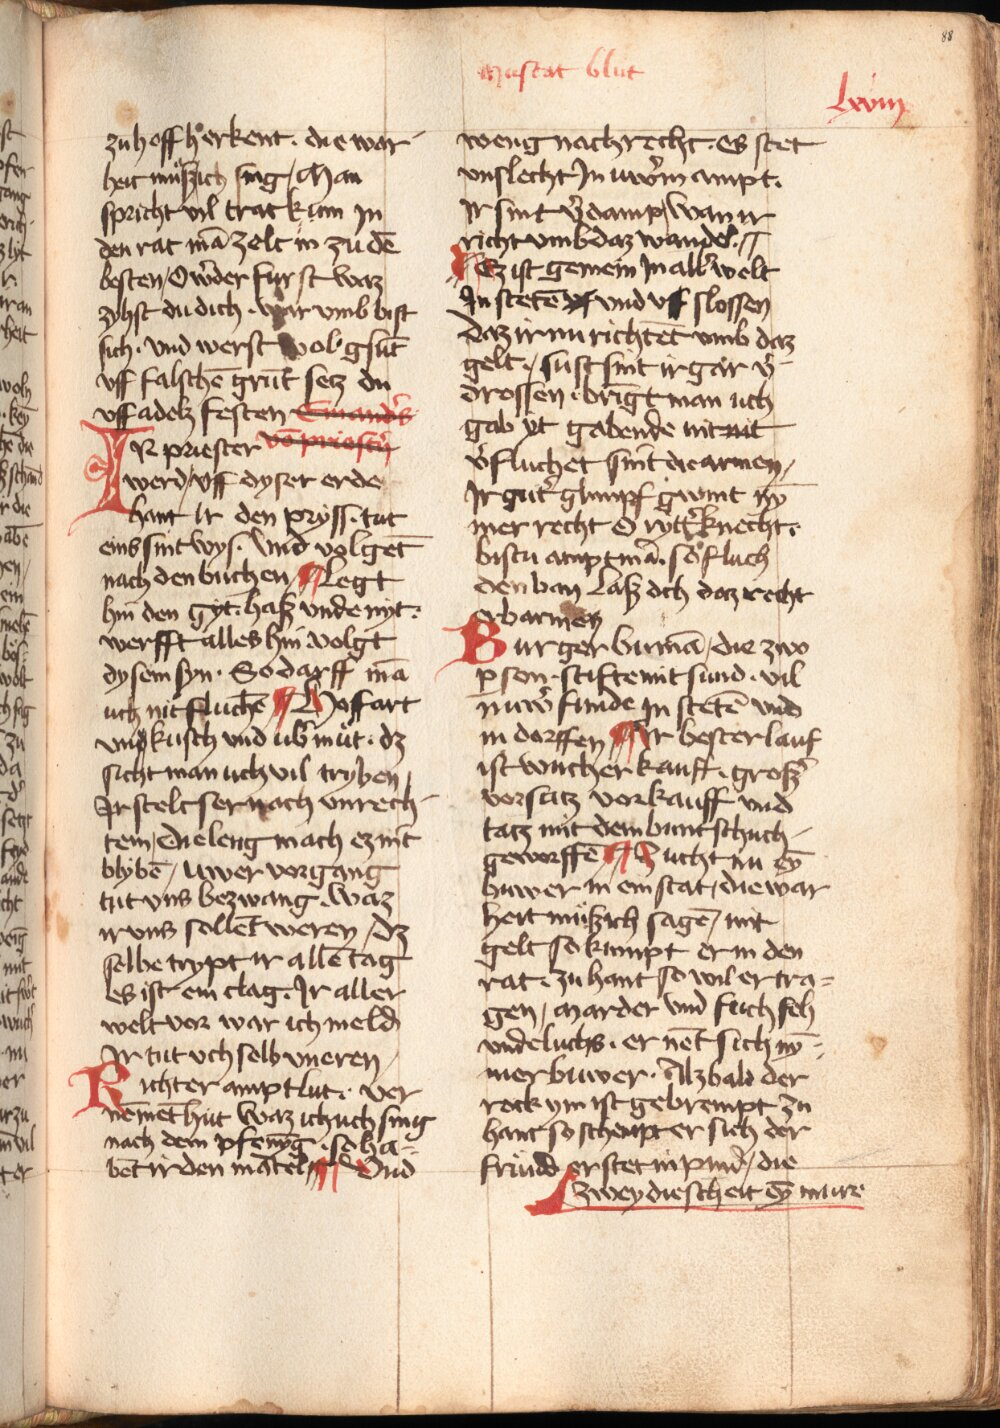 88
Muscat blut
lxviij
zu hoff herkent · die war-
heit müsz ich sing / Man
spricht vil trat kum In
den rat mā zelt in zu dē
besten / O werder furst waz
zyhst du dich · war vmb bist
sich · vnd werst wol gsūt
vff falschē grūt setz du
vff adelz festen
IR priester
werd / vff dyser erde
hant Ir den pryss · tut
eins sint wys · Vnd volgēt
nach den buchen Legt
hin den gyt · hasz vnde nyt ·
werfft alles hin · volgt
dysem syn · So darff mā
uch nit fluchē Hoffart
vnkusch vnd ubermüt · dz
sicht man uch vil tryben
Ir stelt ser nach vnrech-
tem / Die leng mach ez nit
blybē / uwer vorgang
tut vns bezwang · Waz
ir vns sollēt weren / dz
selbe trypt ir allē tag
Es ist ein clag · Ir aller
welt vor war ich meld
Ir tut vch selb vneren /
Richter amptlut · ver
nēmēt hut waz ich uch sing
nach dem pfenyg · so ha-
bēt ir den mātel Vnd
weng nach recht · Es stet
vnslecht In uwerm ampt ·
Ir sint verdampt wan ir
richt vmb daz wandel ·
Ez ist gemein In aller welt
In stetē vnd vff slossen
Daz ir nu richtēt vmb daz
gelt / sust sint ir gar ver
drossen · bringt man uch
gab yt gabende nit
verfluchet sint die armen /
Ir guter glimpf gwint ny
mer recht O rytter knecht ·
bistu amptmā · so fluch
den ban Lasz dich daz recht
erbarmen
Burger burinā / die zwo
pson · stifte mit sund · vil
nuwer funde In stetē vnd
in dorffen Ir bester lauf
ist wucher kauff · groszer
vorsatz vorkauff vnd
tatz mit dem buntschuch
geworffē Zucht nu ey
buwer in ein stat / die war
heit müsz ich sagē / mit
gelt so kumpt er in den
rat · zu hant so wil er tra-
gen / Marder vnd fuch feh
vnde luchs · er nēt sich ny-
mer buwer · Alzbald der
rock ym ist gebrempt zu
hant so schempt er sich der
friuͤnd er stet in pund / die
zwey die scheit ey mure